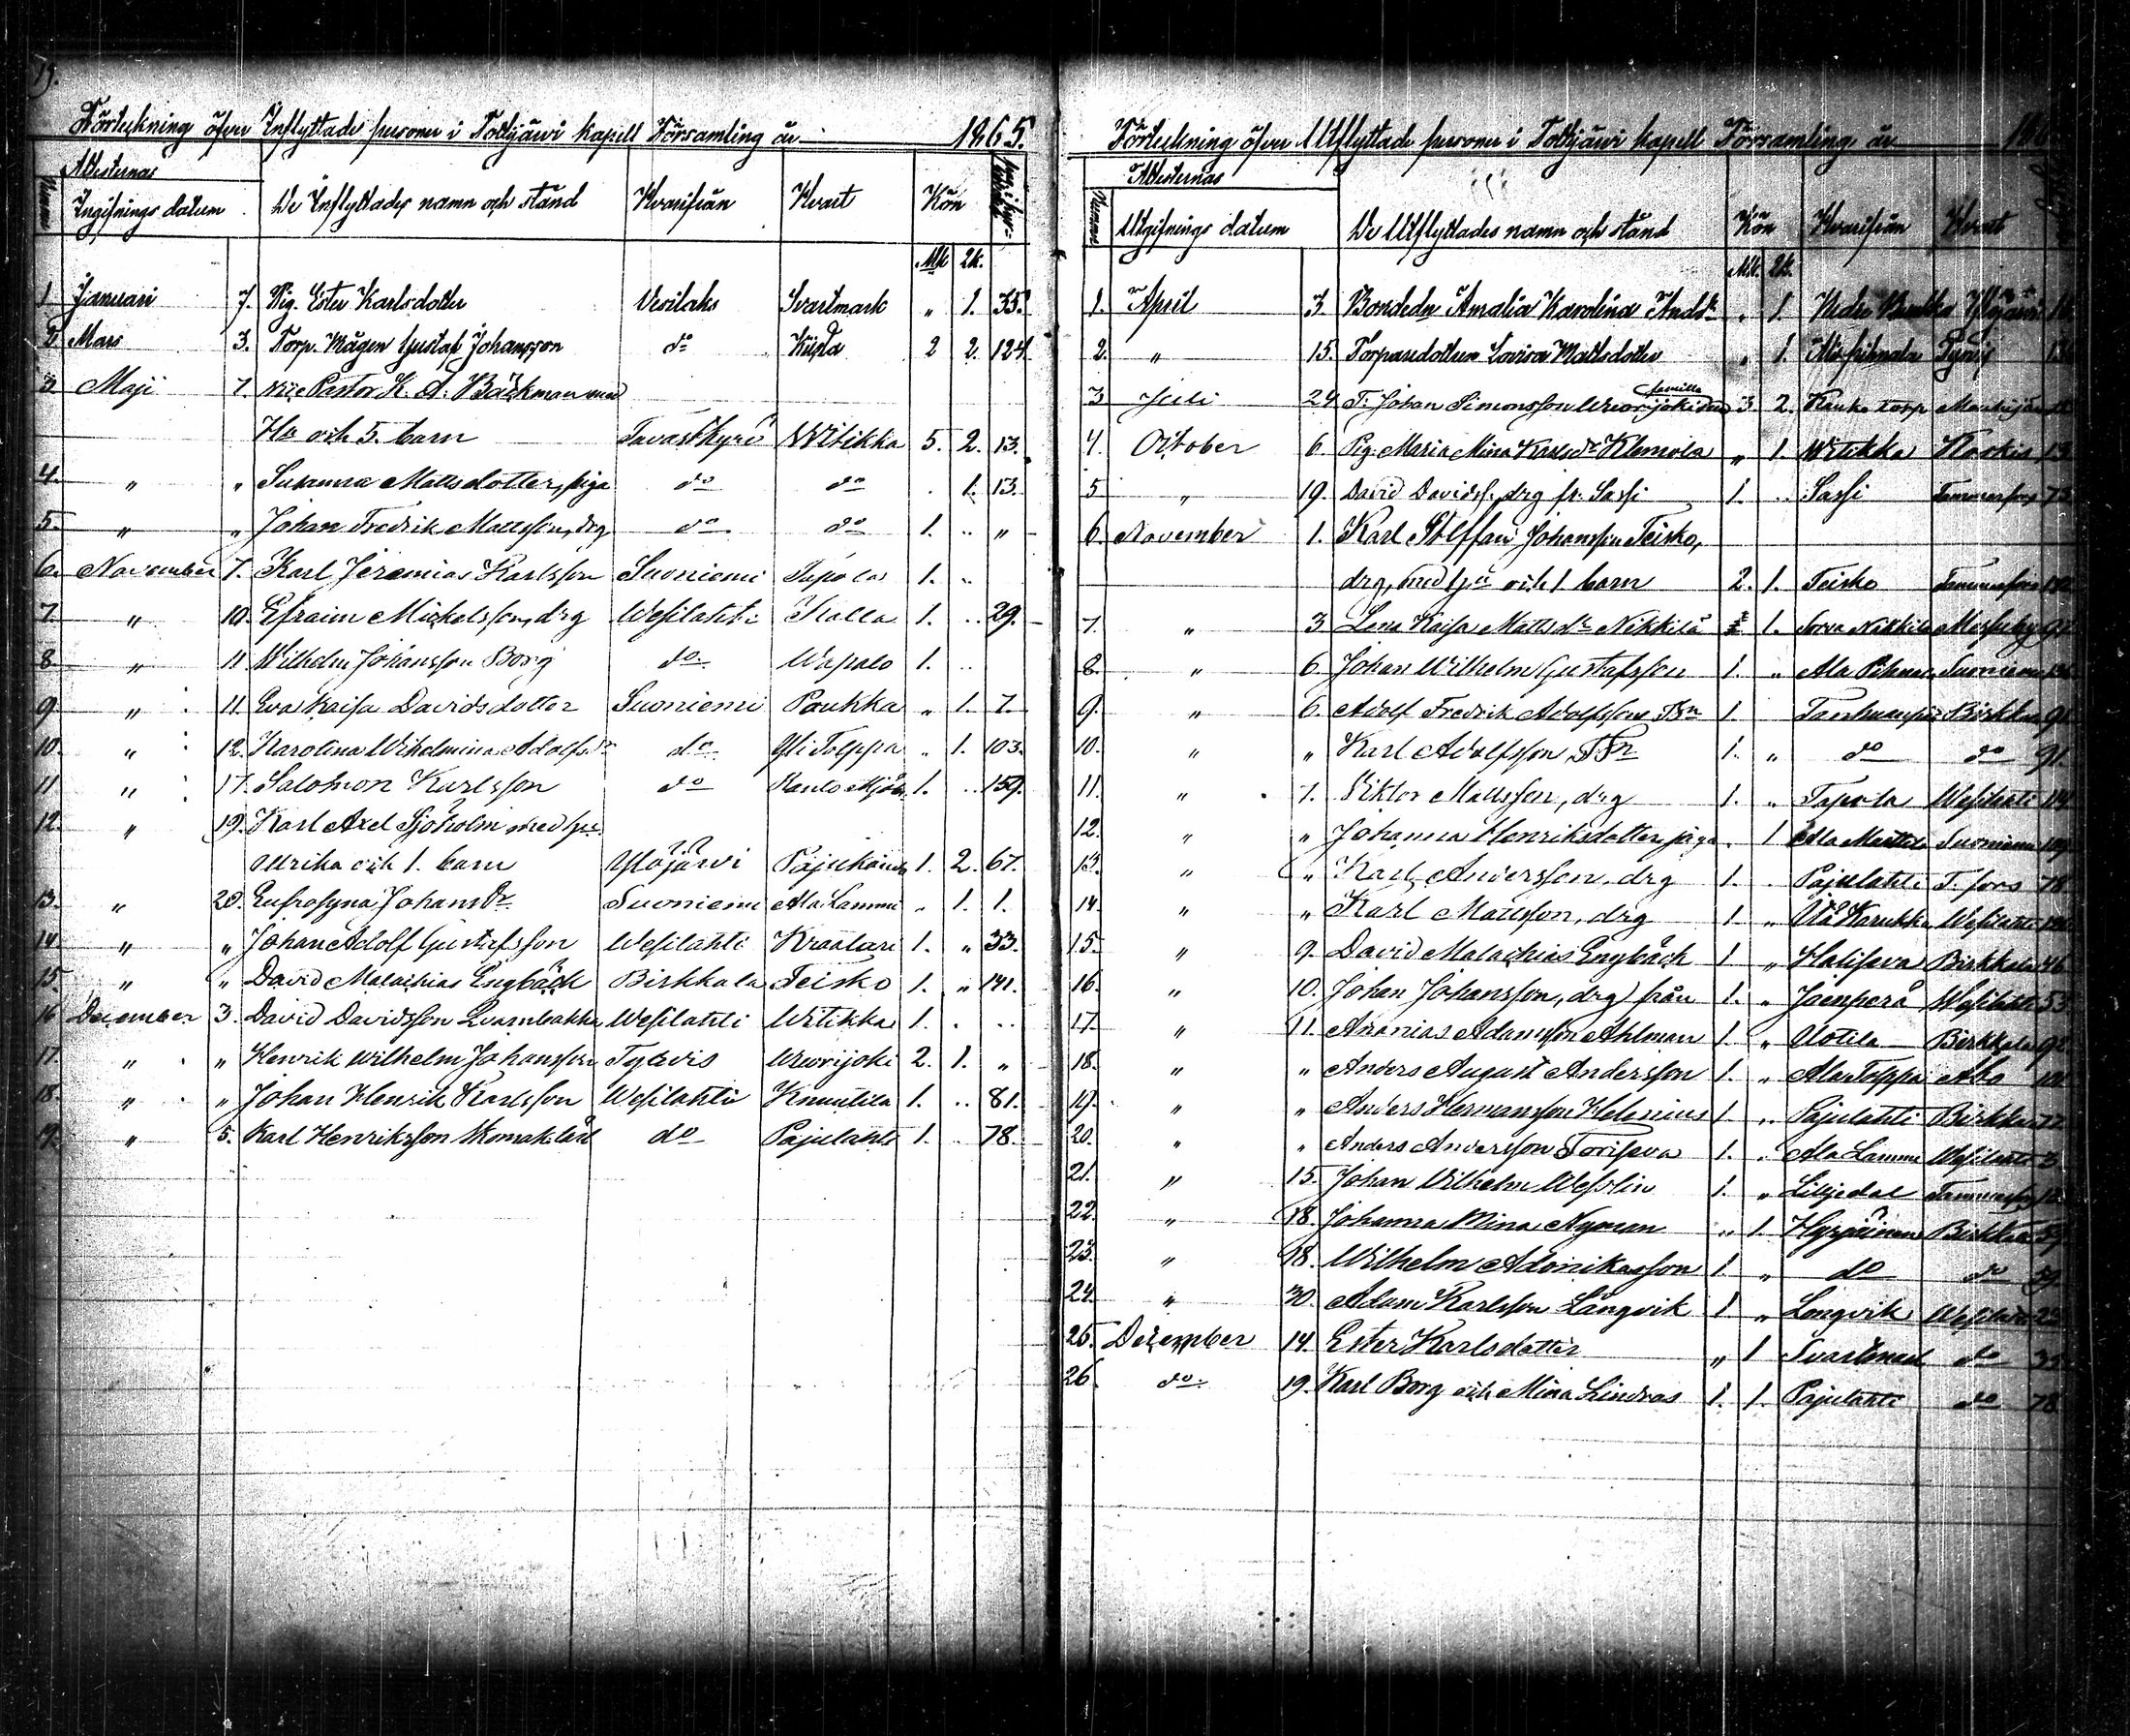 19.
Förteckning öfver Inflyttade personer i Tottijärvi kapell Församling år 1865.
Attesternas
Numer Ingifnings datum De Inflyttades namn och stånd Hvarifrån Hvart Kön
Mk. Qk.
1 Januari 7. Pig. Ester Karlsdotter Vesilaks Svartmark „ 1. 35.
2 Mars 3. Torp. Mågen Gustaf Johansson do 2 2. 124
3 Maji 7. vice Pastor K. A. Bäckman med
Hu och 5. barn Tavastkyrö Witikka 5. 2. 13.
4. „ „ Susanna Mattsdotter, piga do do . 1. 13.
5. „ „ Johan Fredrik Mattsson, drg do do 1. .. „
6. November 7. Karl Jeremias Karlsson Suoniemi Tapola 1. ..
7. „ 10. Efraim Mickelsson, drg Wesilahti Kalla 1. .. 29.
8. „ 11 Wilhelm Johansson Borg do Wapalo 1. ..
9. „ 11. Eva Kaisa Davidsdotter Suoniemi Paukka „ 1. 7.
10. „ 12. Karolina Wilhelmina Adolfsdr do Yli Tolppa „ 1. 103.
11 „ 17. Salomon Karlsson do 1. .. 159.
12. „ 19. Karl Axel Sjöholm med hu
Ulrika och 1. barn Ylöjärvi 1. 2. 67.
13. „ 20. Eufrosyna Johansdr Suoniemi Ala Lammi „ 1. 1.
14. „ „ Johan Adolf Gustafsson Wesilahti Kraalari 1. „ 33.
15. „ „ David Malachias Engbäck Birkkala Teisko 1. „ 141.
16 December 3. David Davidsson Qvarnbakka Wesilahti Witikka 1. . ..
17. „ „ Henrik Wilhelm Johansson Tyrvis Wuorijoki 2. 1. „
18. „ „ Johan Henrik Karlsson Wesilahti Knuutila 1. .. 81.
19. „ 5. Karl Henriksson do Pajulahti 1. .. 78.
Förteckning öfver Utflyttade personer i Tottijärvi kapell Församling år
Attesternas
Numer Utgifnings datum De Utflyttades namn och stånd Kön Hvarifrån Hvart
Mk. Qk.
1. April 3 Bondedr Amalia Karolina Andr „ 1. Ylöjärvi
2. „ 15. Torparedottren Lovisa Mattsdotter „ 1. Tyrvis
familla
3 Juli 29 T. Johan Simonsson Wuorijoki med 3. 2. Kauko torp
4. October 6 Pig. Maria Mina Karlsdr Klemola „ 1. Witikka
5 „ 19. David Davidss. drg fr. Sassi 1. .. Sassi Tammerfors 73
6. November 1. Karl Steffan Johansson Teisko,
drg, med hu och 1 barn 2. 1. Teisko Tammerfors
7. „ 3 Lena Kaisa Mattsdr Nikkilä 1. Sorva Nikkilä
8. „ 6. Johan Wilhelm Gustafsson 1. „ Suoniemi
9. „ 6. Adolf Fredrik Adolfsson Tsn 1. Birkkala 91.
10. „ „ Karl Adolfsson, Tsn 1. „ do do 91.
11. „ 7. Viktor Mattsson, drg 1. „ Tapola Wesilahti
12. „ „ Johanna Henriksdotter piga . 1 Ala Mattila Suoniemi
13. „ „ Karl Andersson, drg 1. . Pajulahti T. fors 78
14. „ „ Karl Mattsson, drg 1 „ Wesilahti
15. „ 9. David Malachias Engbäck 1 „ Haliseva Birkkala 46
16. „ 10. Johan Johansson, drg från 1. „ Jaenperä Wesilahti 55
17. „ 11. Ananias Adamsson Ahlman 1. „ Uotila Birkkala 92
18. „ „ Anders August Andersson 1. „ Ala Tolppa Åbo
19. „ „ Anders Hermansson Helenius 1 „ Pajulahti Birkkala 77
20. „ „ Anders Andersson Toriseva 1. „ Ala Lammi Wesilahti 3
21. „ 15. Johan Wilhelm Wesslin 1. „ Liljedal Tammerfors
22. „ 18. Johanna Mina Nyman „ 1. Hyrsäinen Birkkala 59
23. „ 18. Wilhelm Adonikasson 1. „ do do 59
24. „ 30. Adam Karlsson Långvik 1 „ Longvik Wesilahti 23
25. December 14. Ester Karlsdotter „ 1 Svartmark do 35
26. do 19. Karl Borg och Mina Lindros 1. 1. Pajulahti do 78